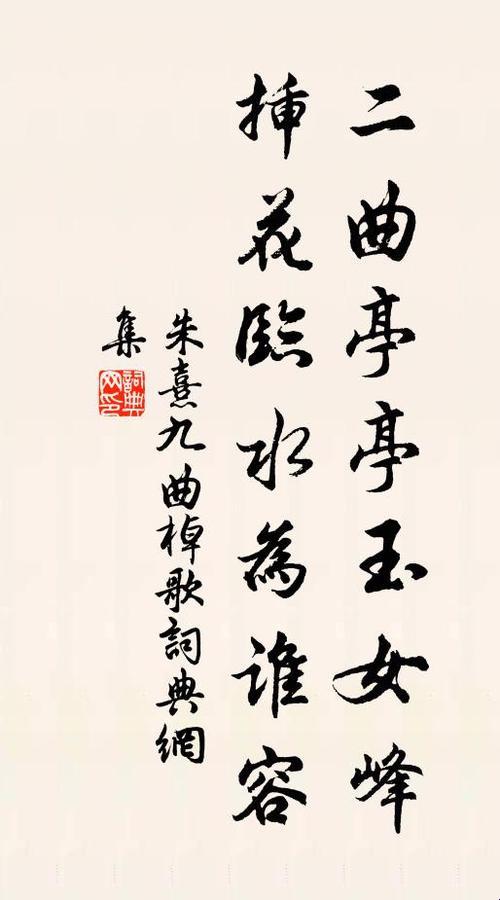 二曲亭亭玉女峰
挿花臨水為誰容
朱熹九曲棹歌詞典網
集
詞典网印